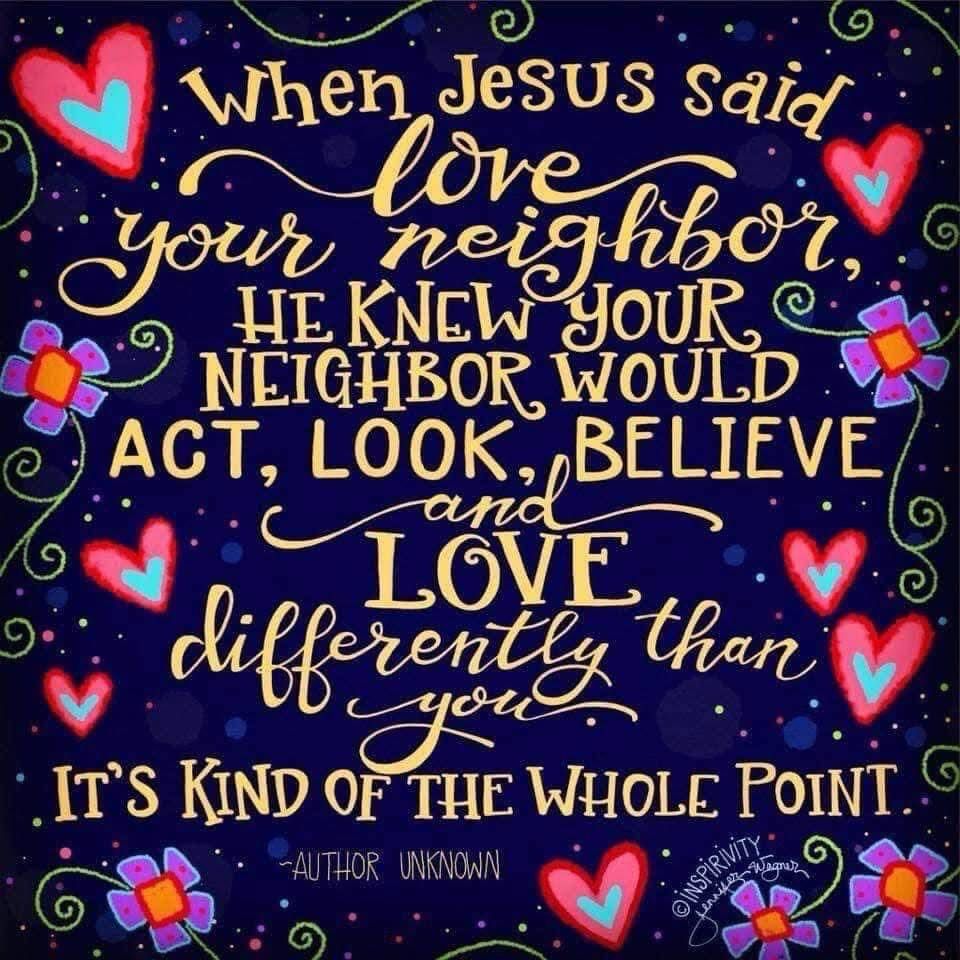 When Jesus said
love
your neighbor,
HE KNEW YOUR
NEIGHBOR WOULD
ACT, LOOK, BELIEVE
and
LOVE
differently than
you.
IT'S KIND OF THE WHOLE POINT.
~AUTHOR UNKNOWN
©INSPIRIVITY
Jennifer Wagner